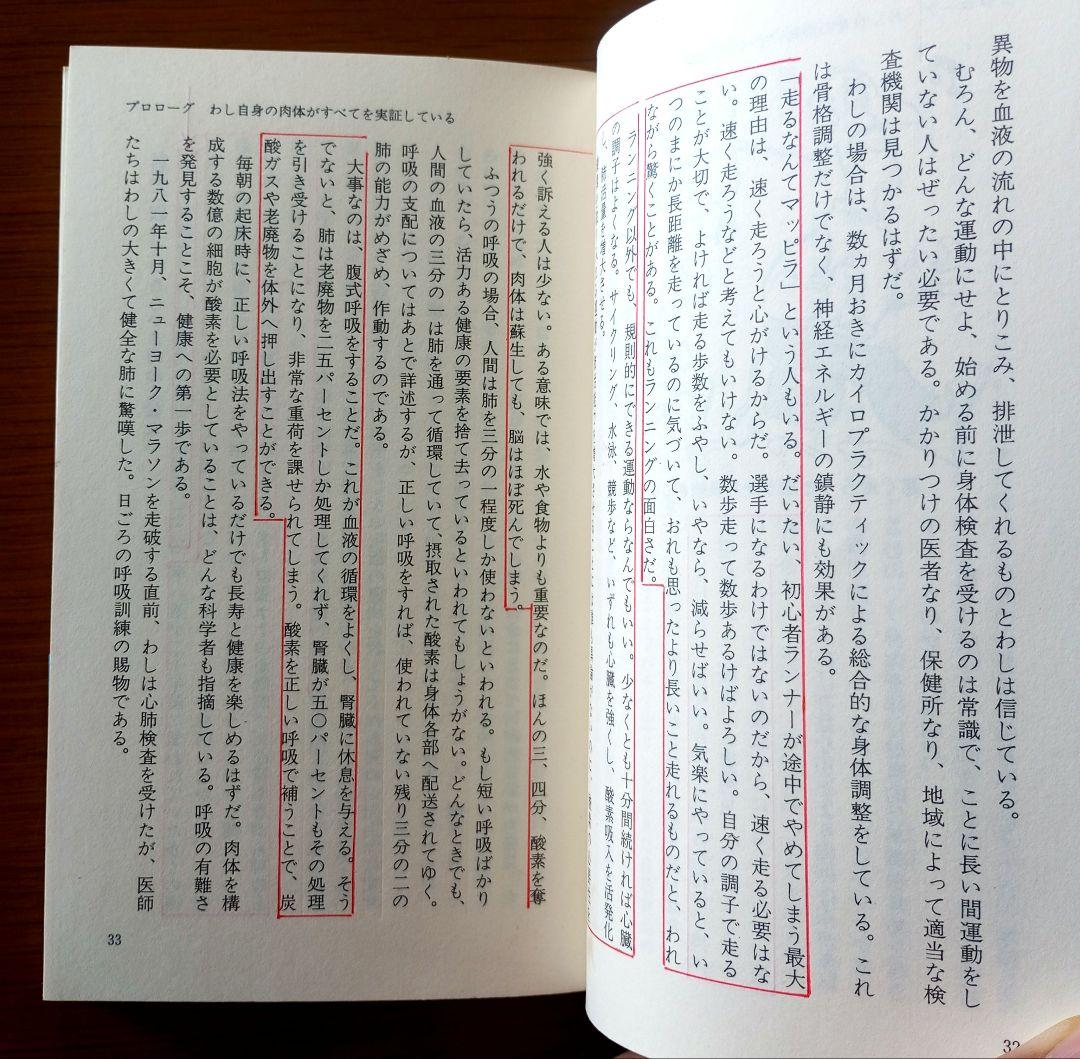 異物を血液の流れの中にとりこみ、排泄してくれるものとわしは信じている。
むろん、どんな運動にせよ、始める前に身体検査を受けるのは常識で、ことに長い間運動をし
ていない人はぜったい必要である。かかりつけの医者なり、保健所なり、地域によって適当な検
査機関は見つかるはずだ。
わしの場合は、数ヵ月おきにカイロプラクティックによる総合的な身体調整をしている。これ
は骨格調整だけでなく、神経エネルギーの鎮静にも効果がある。
「走るなんてマッピラ」という人もいる。だいたい、初心者ランナーが途中でやめてしまう最大
の理由は、速く走ろうと心がけるからだ。選手になるわけではないのだから、速く走る必要はな
い。速く走ろうなどと考えてもいけない。数歩走って数歩あるけばよろしい。自分の調子で走る
ことが大切で、よければ走る歩数をふやし、いやなら、減らせばいい。気楽にやっていると、い
つのまにか長距離を走っているのに気づいて、おれも思ったより長いこと走れるものだと、われ
ながら驚くことがある。これもランニングの面白さだ。
ランニング以外でも、規則的にできる運動ならなんでもいい。少なくとも十分間続ければ心臓
の調子はよくなる。サイクリング、水泳、競歩など、いずれも心臓を強くし、酸素吸入を活発化
32
プロローグ わし自身の肉体がすべてを実証している
強く訴える人は少ない。ある意味では、水や食物よりも重要なのだ。ほんの三、四分、酸素を奪
われるだけで、肉体は蘇生しても、脳はほぼ死んでしまう。
ふつうの呼吸の場合、人間は肺を三分の一程度しか使わないといわれる。もし短い呼吸ばかり
していたら、活力ある健康の要素を捨て去っているといわれてもしょうがない。どんなときでも、
人間の血液の三分の一は肺を通って循環していて、摂取された酸素は身体各部へ配送されてゆく。
呼吸の支配についてはあとで詳述するが、正しい呼吸をすれば、使われていない残り三分の二の
肺の能力がめざめ、作動するのである。
大事なのは、腹式呼吸をすることだ。これが血液の循環をよくし、腎臓に休息を与える。そう
でないと、肺は老廃物を二五パーセントしか処理してくれず、腎臓が五〇パーセントもその処理
を引き受けることになり、非常な重荷を課せられてしまう。酸素を正しい呼吸で補うことで、炭
酸ガスや老廃物を体外へ押し出すことができる。
毎朝の起床時に、正しい呼吸法をやっているだけでも長寿と健康を楽しめるはずだ。肉体を構
成する数億の細胞が酸素を必要としていることは、どんな科学者も指摘している。呼吸の有難さ
を発見することこそ、健康への第一歩である。
一九八一年十月、ニューヨーク・マラソンを走破する直前、わしは心肺検査を受けたが、医師
たちはわしの大きくて健全な肺に驚嘆した。日ごろの呼吸訓練の賜物である。
33